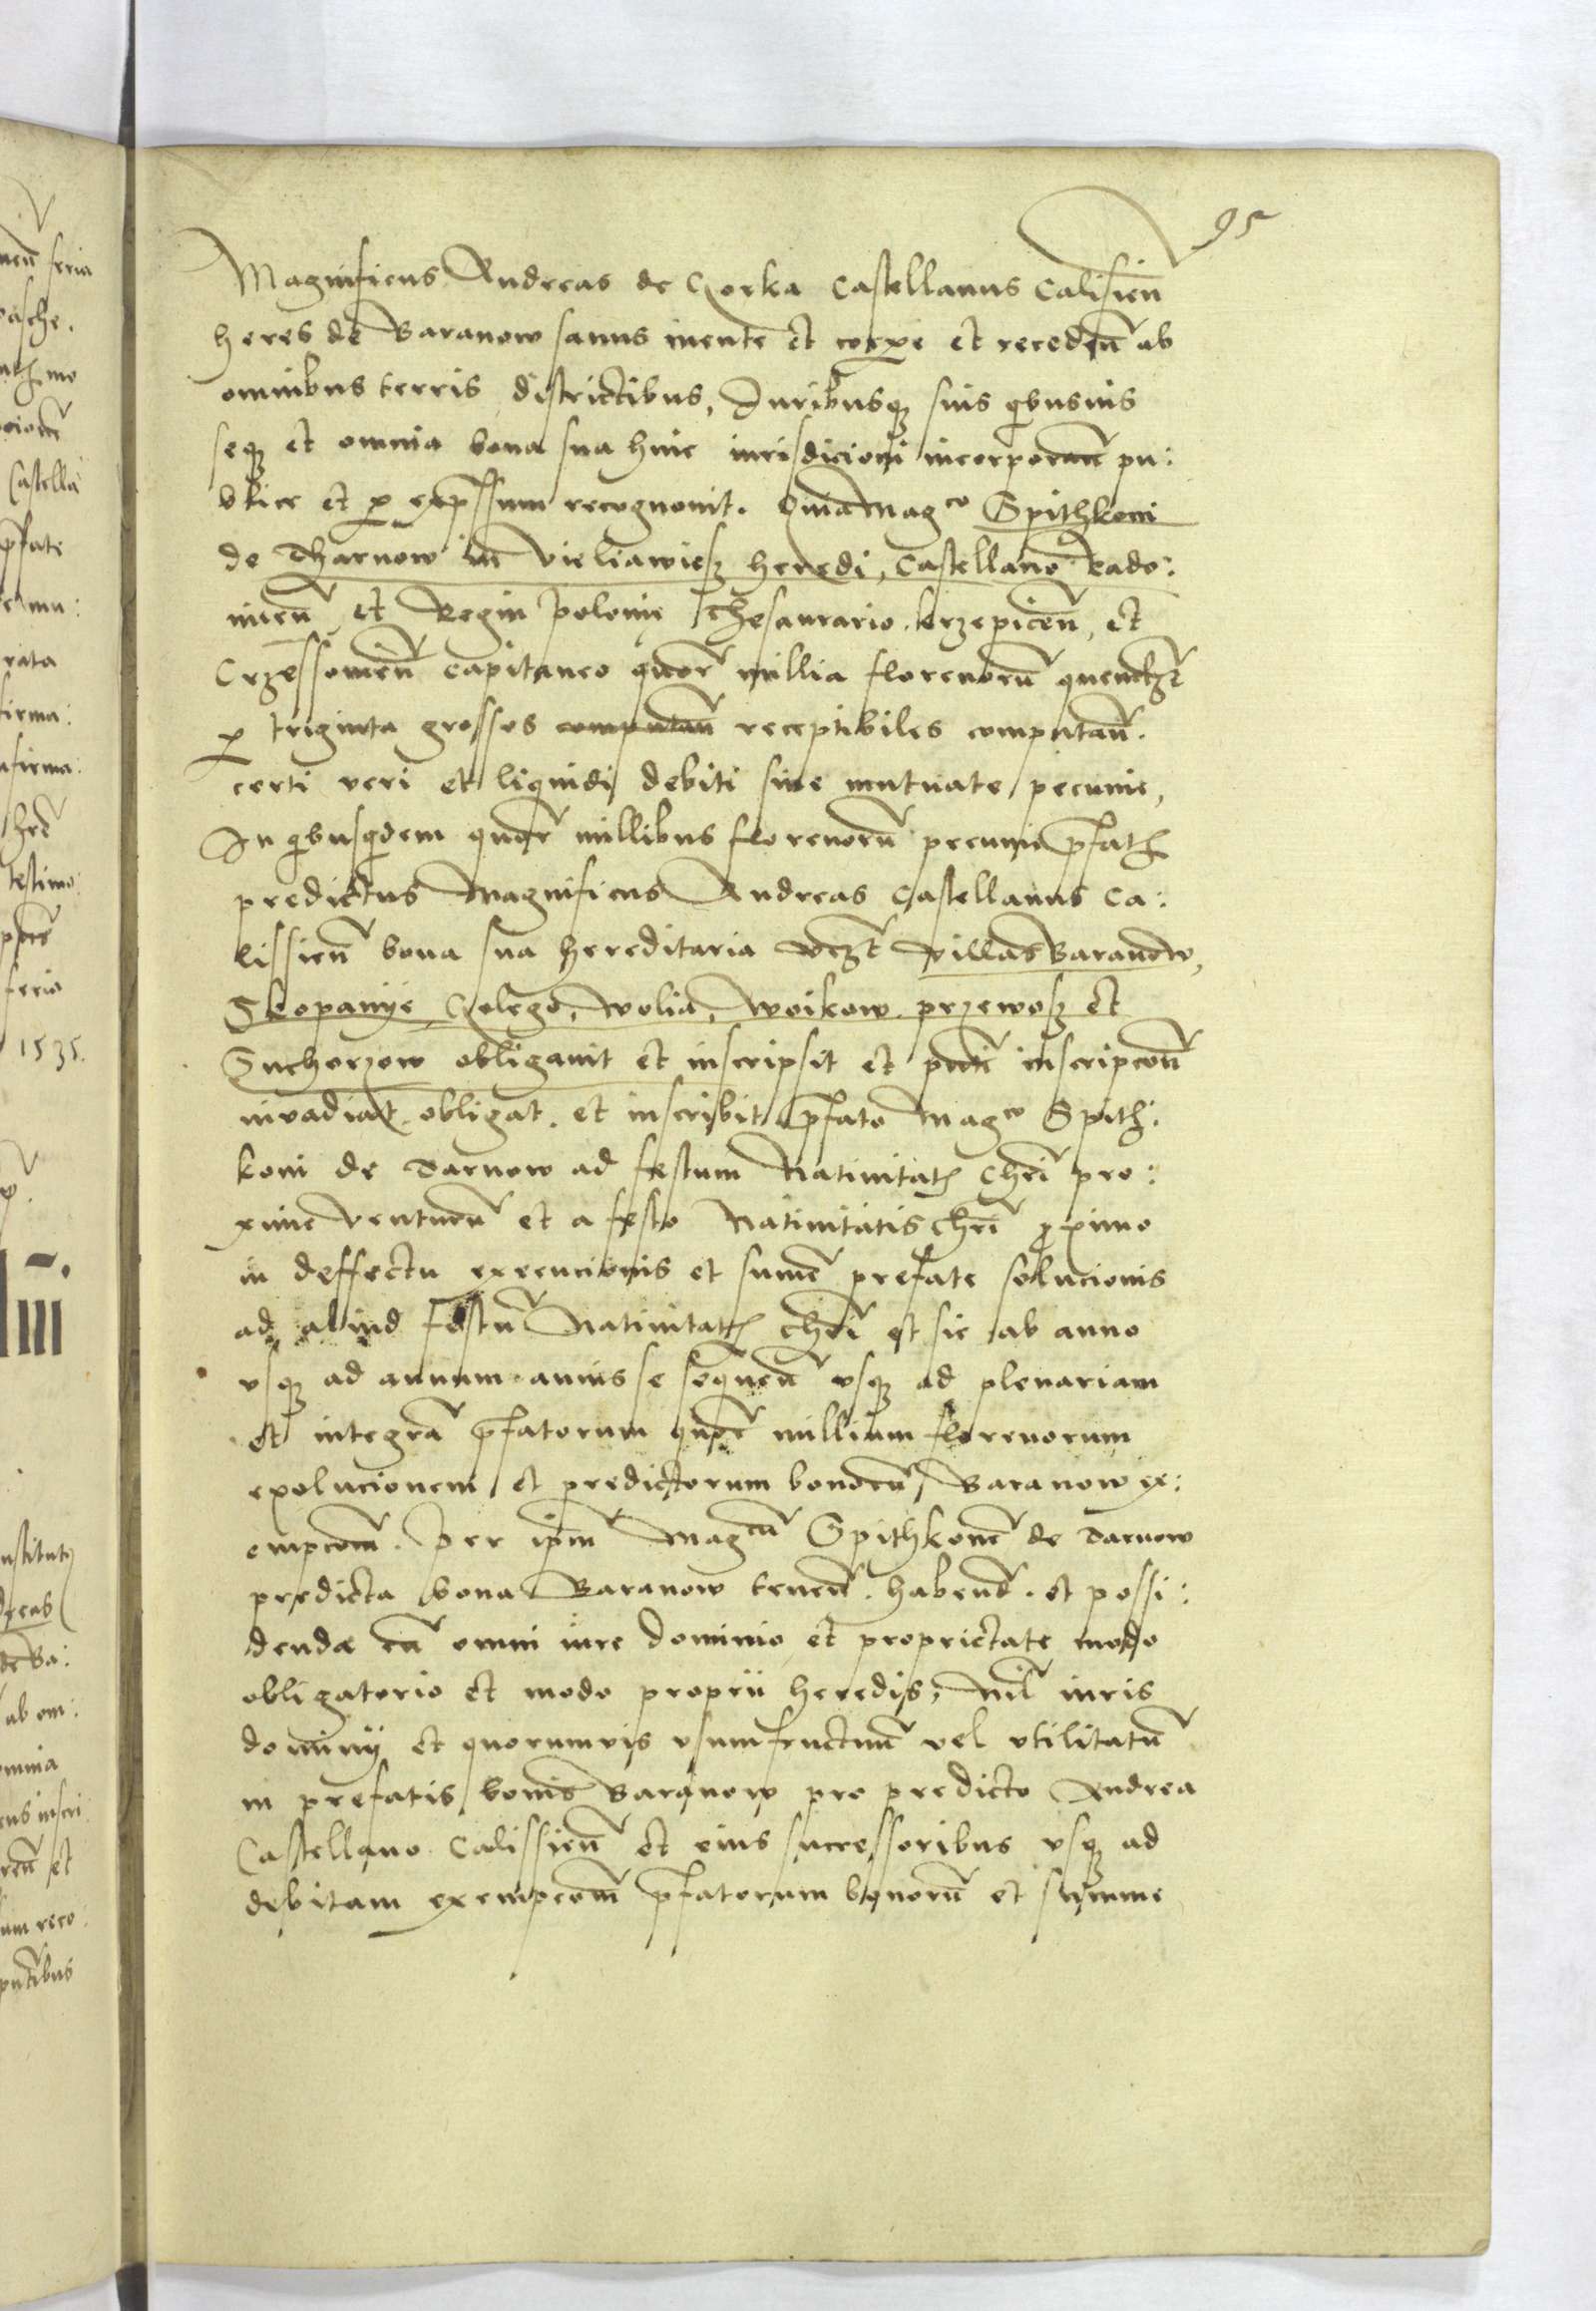 95
Magnificus Andreas de Gorka Castellanus Calisien̄
heres de Baranow sanus mente et corpe et receden̄ ab
omnibus terris districtibus, Juribusqꝫ suis qbusuis
seqꝫ et omnia bona sua huic iurisdicioni incorporan̄ pu:
blice et ꝑ exp̄ssum recognouit. Quia Magco Spithkoni
de Tharnow in Vieliawiesz heredi, Castellano Rado:
mien̄ et Regni Polonie Thesaurario. krzepicen̄, et
Crzessowien̄ capitaneo quor̄ millia florenorū quemlꝫt
ꝑ triginta grossos computan̄ receptibiles computan̄.
certi veri et liquidi debiti siue mutuate pecunie,
In qbusqdem quor̄ millibus florenorū pecunie p̄fatę
predictus Magnificus Andreas Castellanus Ca:
lissien̄ bona sua hereditaria vꝫt villas Baranow,
Skopanije, Golego, Wolia, Woikow. przewosz et
Suchorzow obligauit et inscripsit et pn̄ti inscripcon̄
inuadiat. obligat. et inscribit p̄fato Magco Spith:
koni de Tarnow ad festum Natiuitatꝭ Chri pro:
xime venturū et a festo Natiuitatis Chri ꝓximo
in deffectu execucionis et sum̄e prefate solucionis
ad aliud Festū Natiuitatꝭ Chri et sic ab anno
vsqꝫ ad annum annis se sequen̄ vsqꝫ ad plenariam
et integrā p̄fatorum quor̄ millium florenorum
exolucionem et predictorum bonorū Baranow ex:
empcom̄. Per ipm̄ Magcū Spithkonē de Tarnow
predicta bona Baranow tenen̄. habend̄. et possi:
denda cū omni iure dominio et proprietate modo
obligatorio et modo proprii heredis, nil̄ iuris
dominij et quorumuis vsumfructuū vel vtilitatū
in prefatis bonis Baranow pro predicto Andrea
Castellano Calissien̄ et eius successoribus vsqꝫ ad
debitam exempcom̄ p̄fatorum bonorū et summe